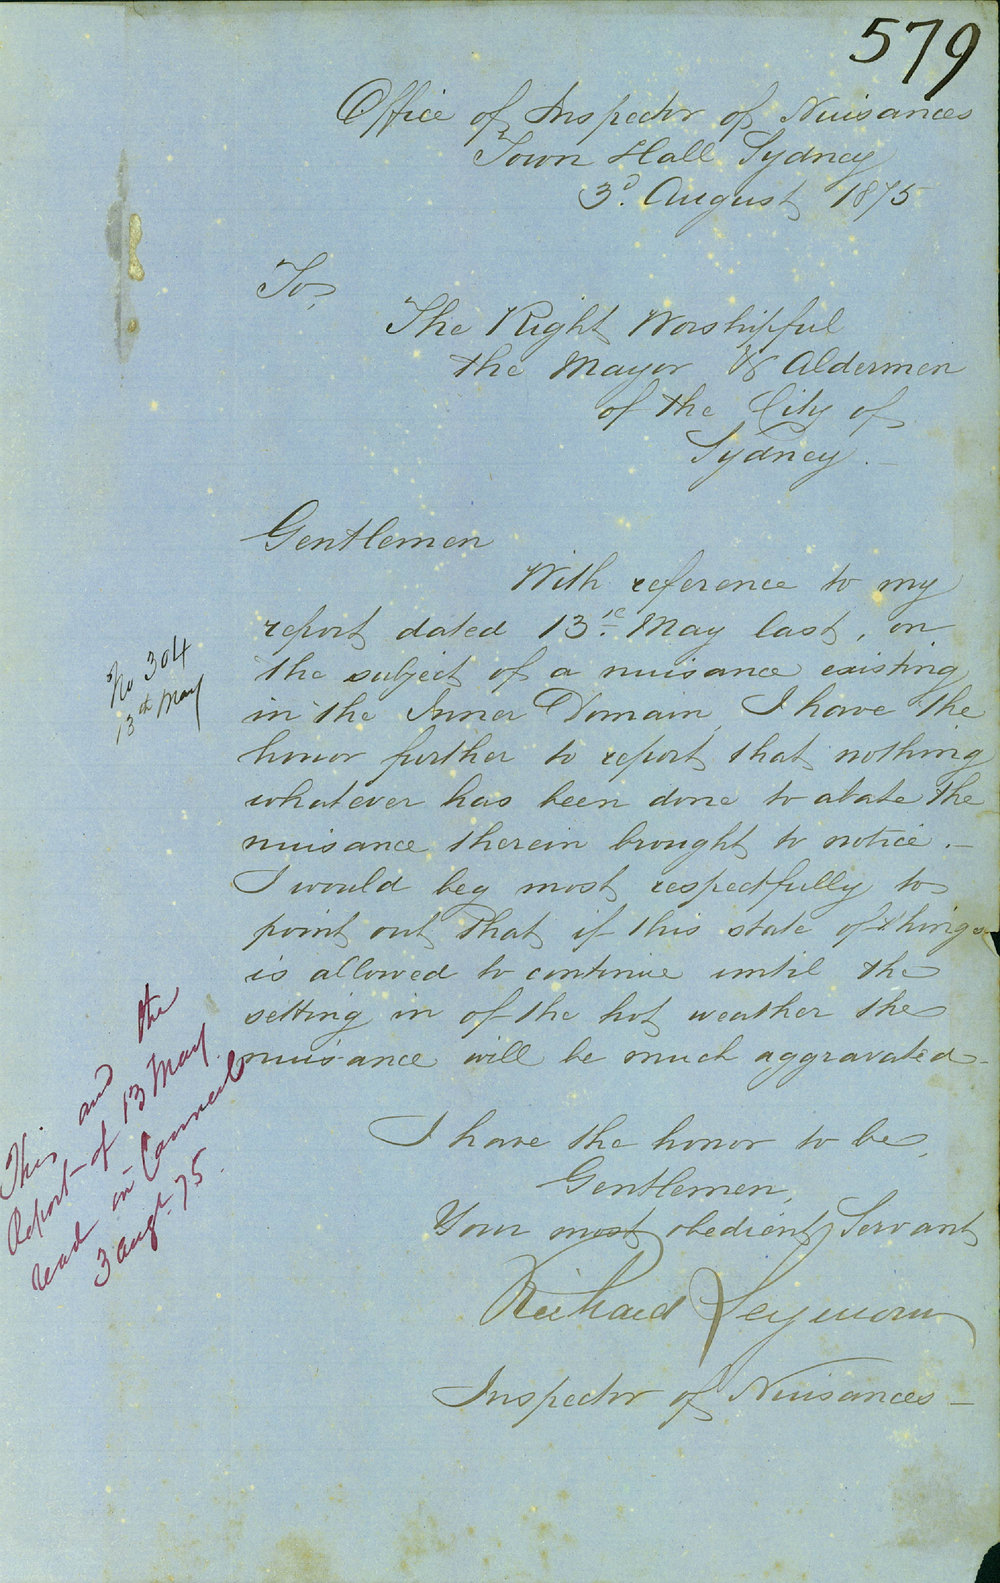 579
Office of Inspector of Nuisances
Town Hall Sydney
3d. August 1875
To,
The Right Worshipful
the Mayor & Aldermen
of the City of
Sydney. —
Gentlemen
With reference to my
report dated 13th May last, on
the subject of a nuisance existing
in the Inner Domain, I have the
honor further to report that nothing
whatever has been done to abate the
nuisance therein brought to notice. —
I would beg most respectfully to
point out that if this state of things
is allowed to continue until the
setting in of the hot weather the
nuisance will be much aggravated —
I have the honor to be,
Gentlemen,
Your most obedient Servant
Richard Seymour
Inspector of Nuisances —
No 304
13th May
This and the
Report of 13 May
read in Council
3 augt. 75.